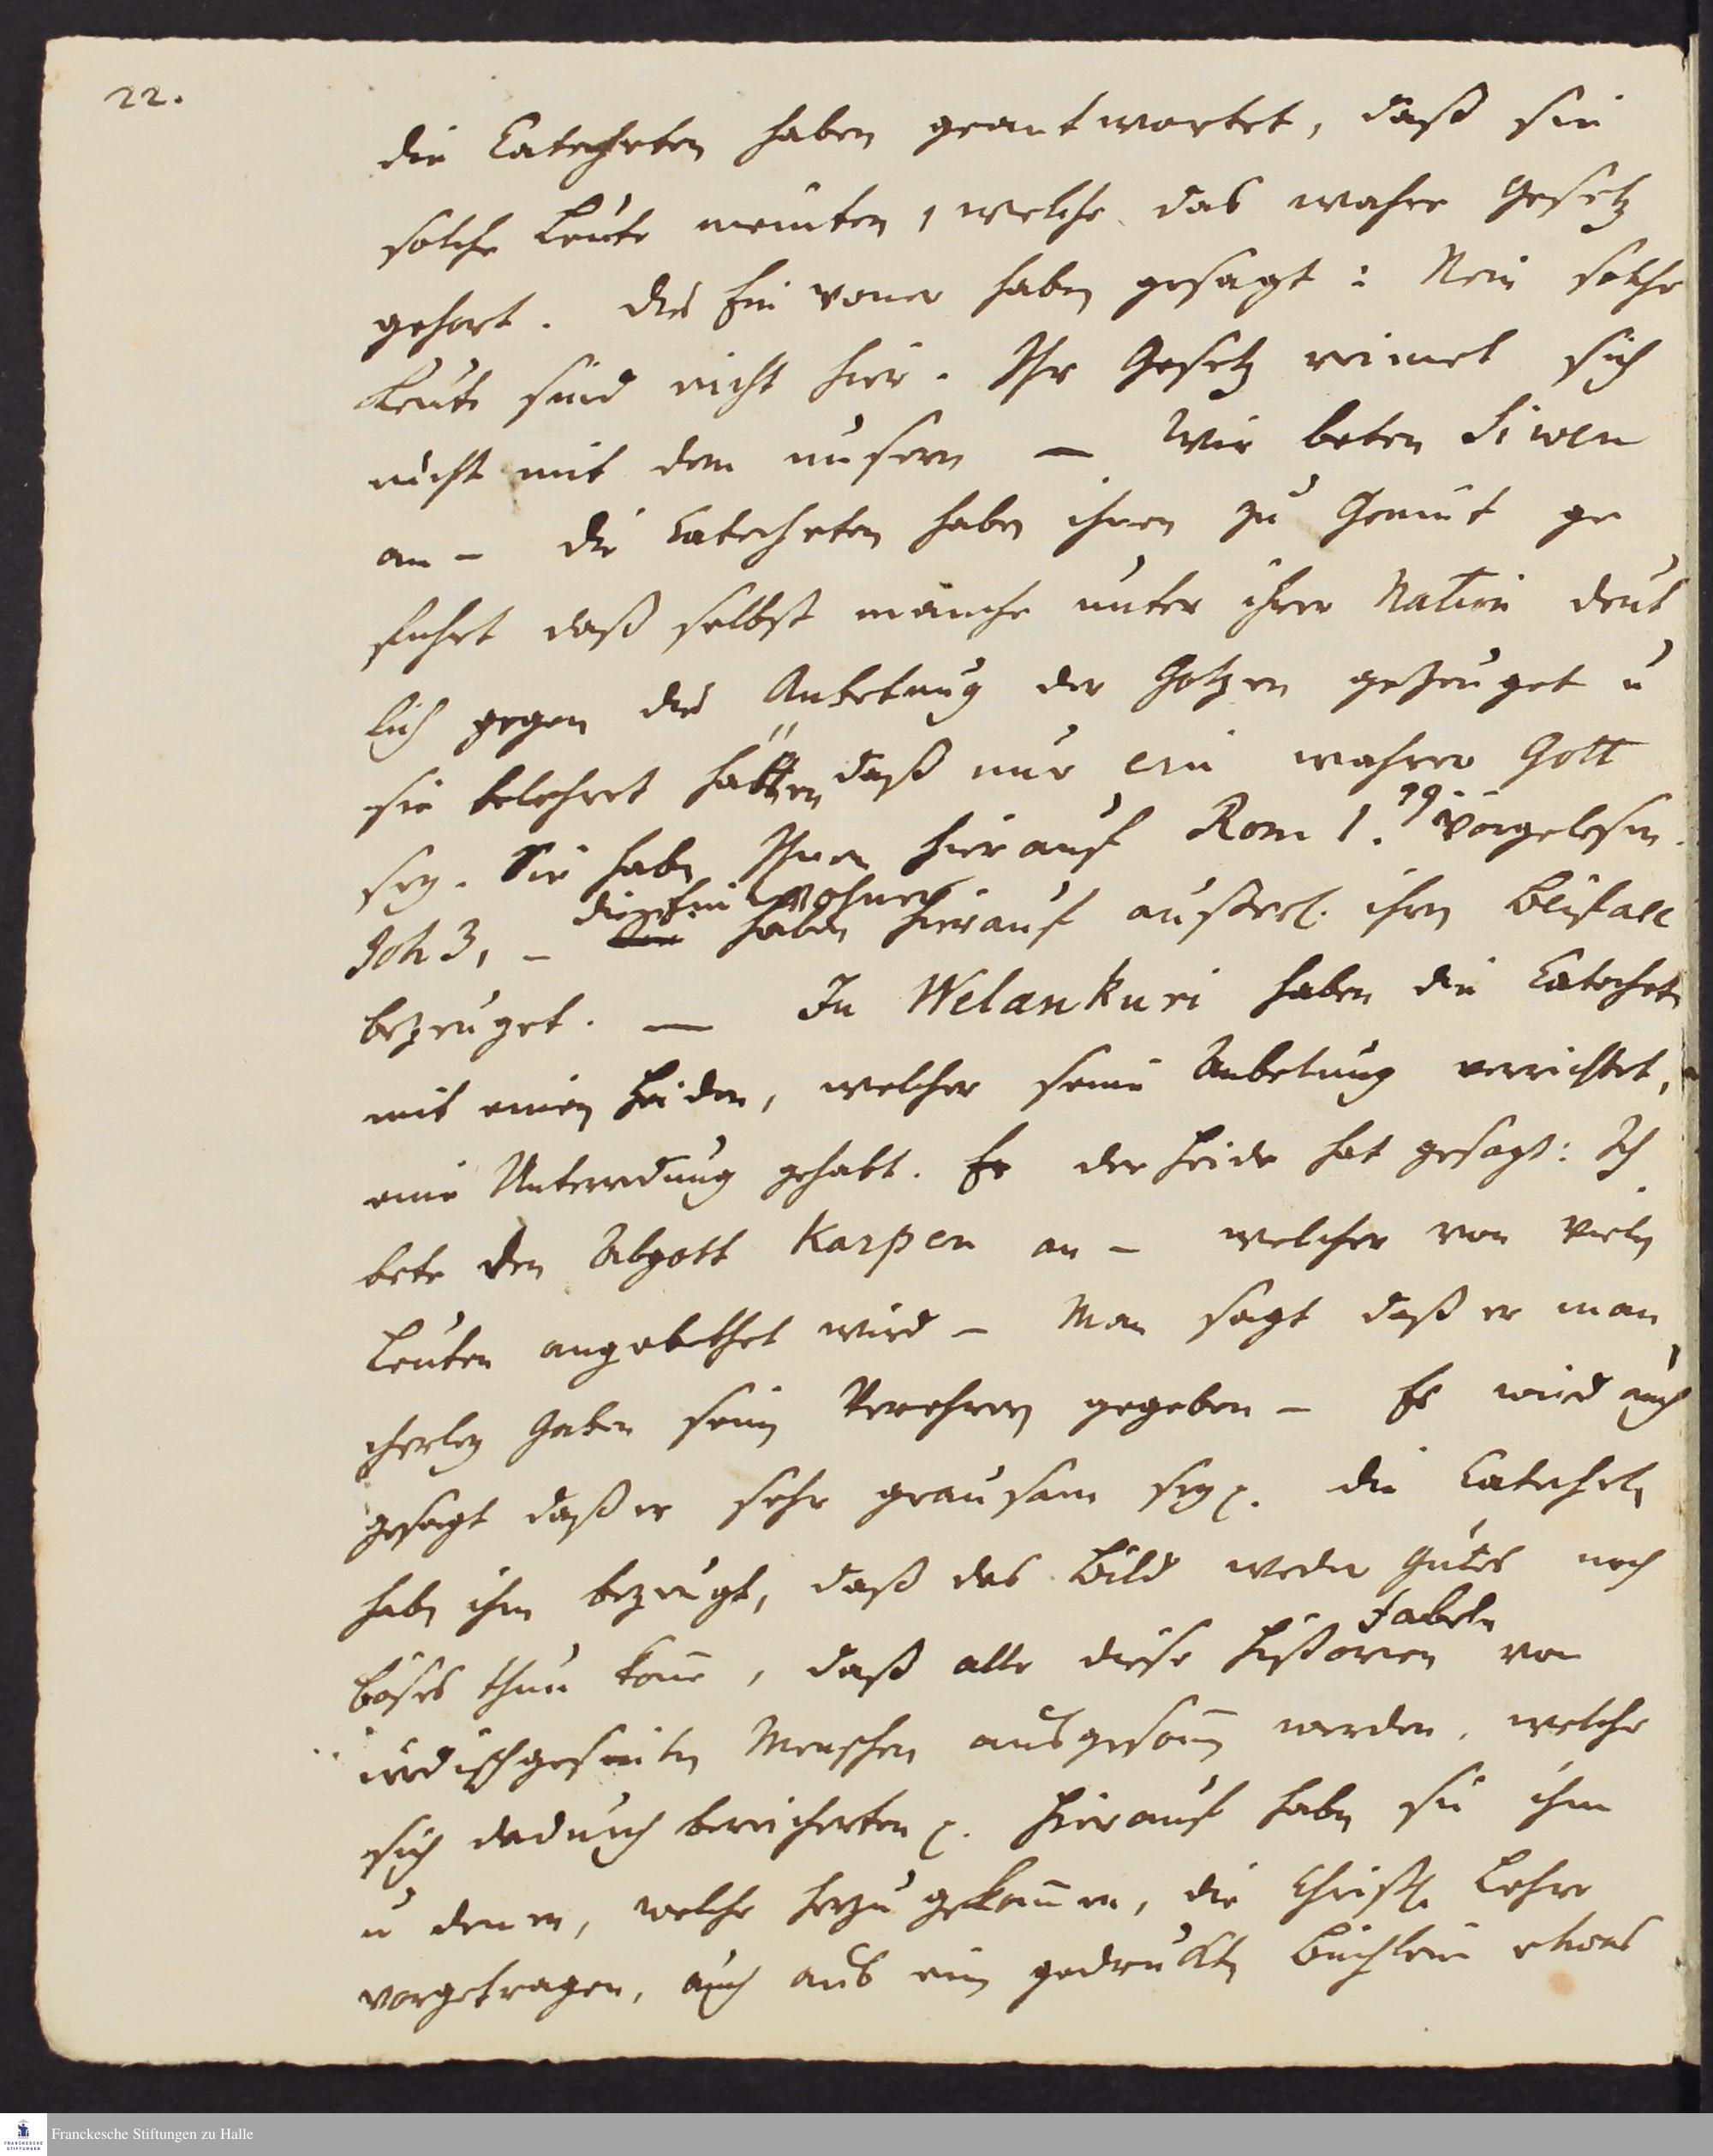 22.
die Catecheten haben geantwortet, daß sie
solche Leute meinten, welche das wahre Gesetz
gehort. Die Einwoner haben gesagt: Nein solche
Leute sind nicht hier. Ihr Gesetz reimet sich
nicht mit dem unsern — Wir beten Siwen
an – die Catecheten haben ihnen zu Gemüt ge
führt daß selbst manche unter ihrer Nation deut
lich gegen die Anbetung der Gotzen gezeuget u
sie belehret hätten daß nur ein wahrer Gott
sey. Sie haben Ihnen hierauf Rom 1. vorgelesen.
Joh 3, – die Einwohner haben hierauf äußerl. ihren Beifall
bezeuget. — In Welankuri haben die Catecheten
mit einen Heiden, welcher seine Anbetung verrichtet,
eine Unterredung gehabt. Er der Heide hat gesagt: Ich
bete den Abgott Karpen an – welcher von vielen
Leuten angebethet wird – Man sagt daß er man
cherley Gaben seinen Verehrern gegeben – Es wird auch
gesagt daß er sehr grausam sey. die Catecheten
haben ihm bezeugt, daß das Bild weder Gutes noch
böses thun könne, daß alle diese Historien Fabeln von
irdischgesinten Menschen ausgesonnen worden, welche
sich dadurch bereicherten. Hierauf haben sie ihm
u denen, welche herzu gekommen, die Christl. Lehre
vorgetragen, auch aus einen gedruckten Büchlein etwas
Franckesche Stiftungen zu Halle